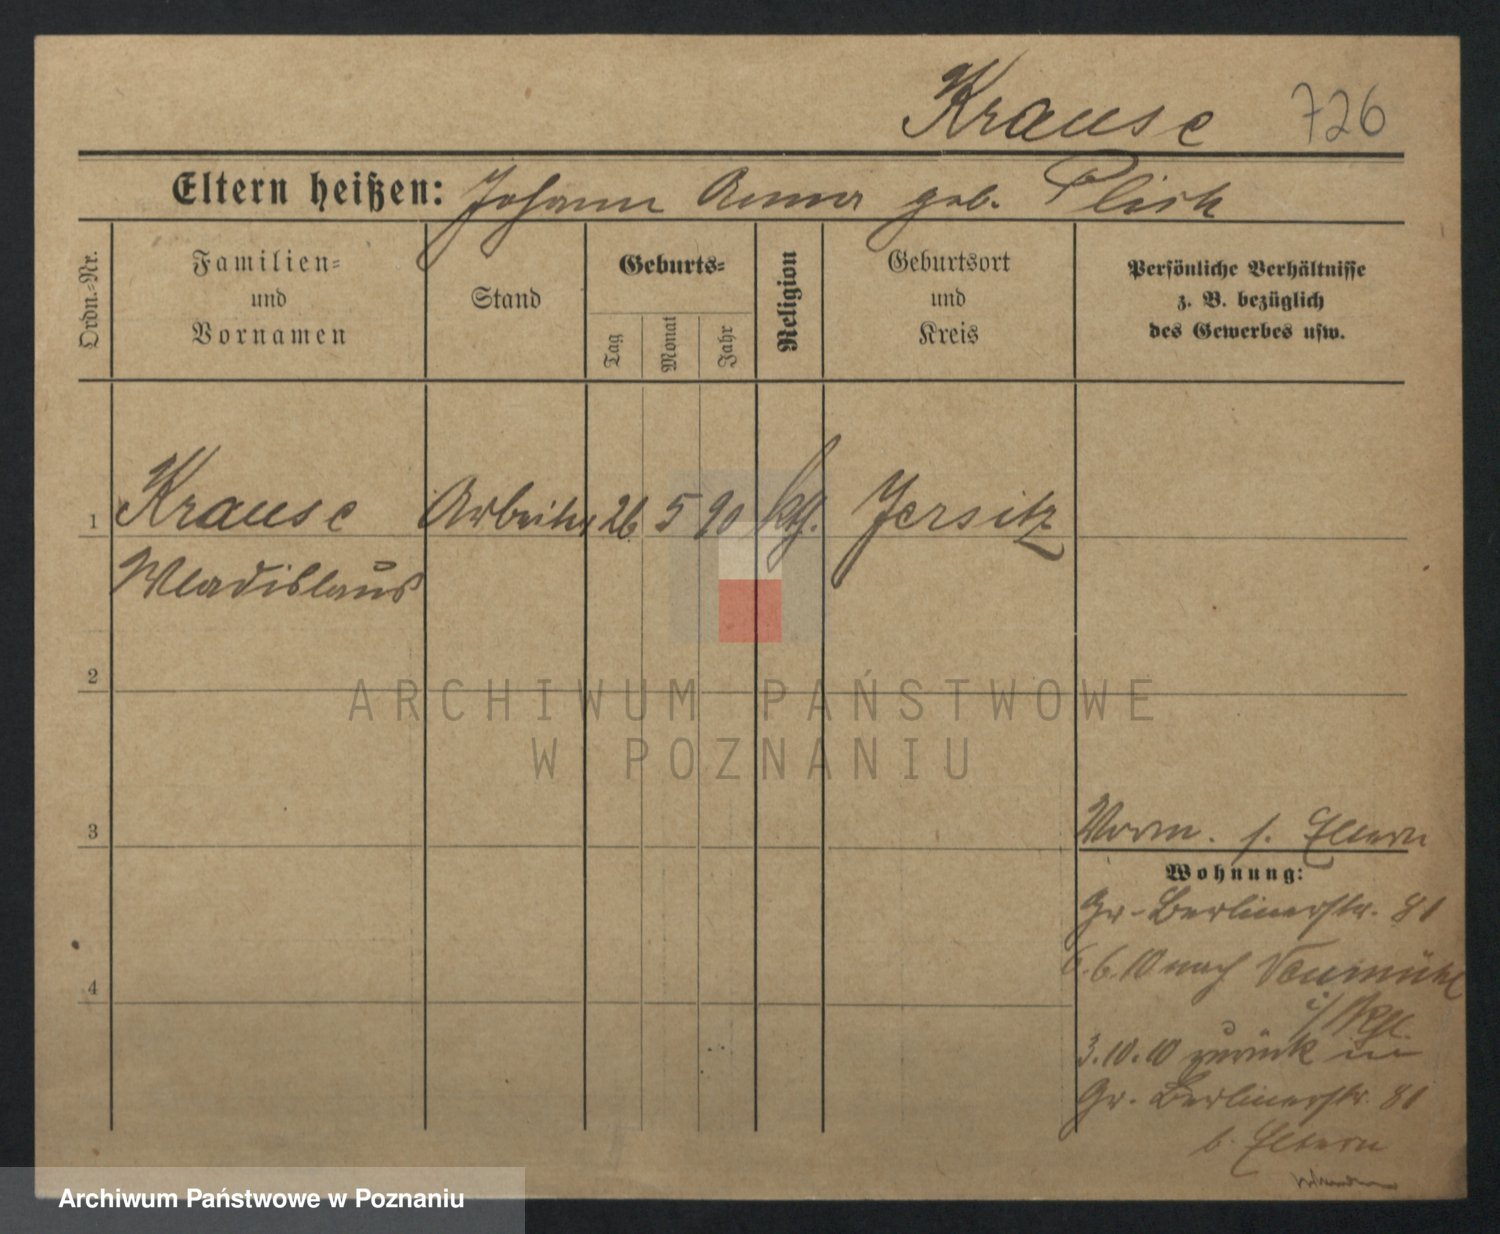 Krause 726
Eltern heißen: Johann Anna geb. Plisk
Ordn.-Nr.
Familien-
und
Vornamen
Stand
Geburts-
Tag
Monat
Jahr
Religion
Geburtsort
und
Kreis
Persönliche Verhältnisse
z. B. bezüglich
des Gewerbes usw.
1 Krause Arbeiter 26 5 90 kth. Jersitz
Wladislaus
2
ARCHIWUM PAŃSTWOWE
W POZNANIU
3
Vorm. s. Eltern
Wohnung:
Gr. Berlinerstr. 81
6.6.10 nach Neumühl
i/
3.10.10 zurück in
4
Gr. Berlinerstr. 81
b. Eltern
Archiwum Państwowe w Poznaniu